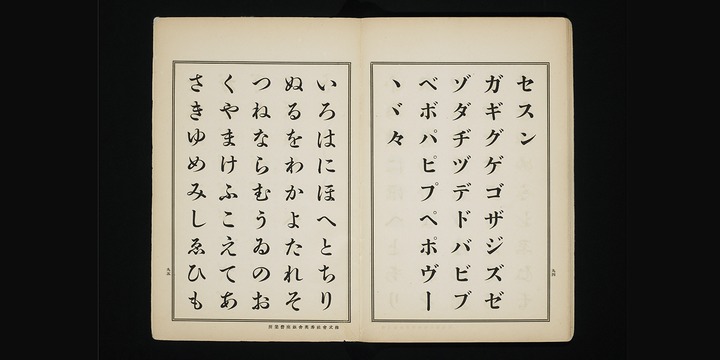 セスン
ガギグゲゴザジズゼ
ゾダヂヅデドバビブ
ベボパピプペポヴー
ヽヾ々
九四
いろはにほへとちり
ぬるをわかよたれそ
つねならむうゐのお
くやまけふこえてあ
さきゆめみしゑひも
九五